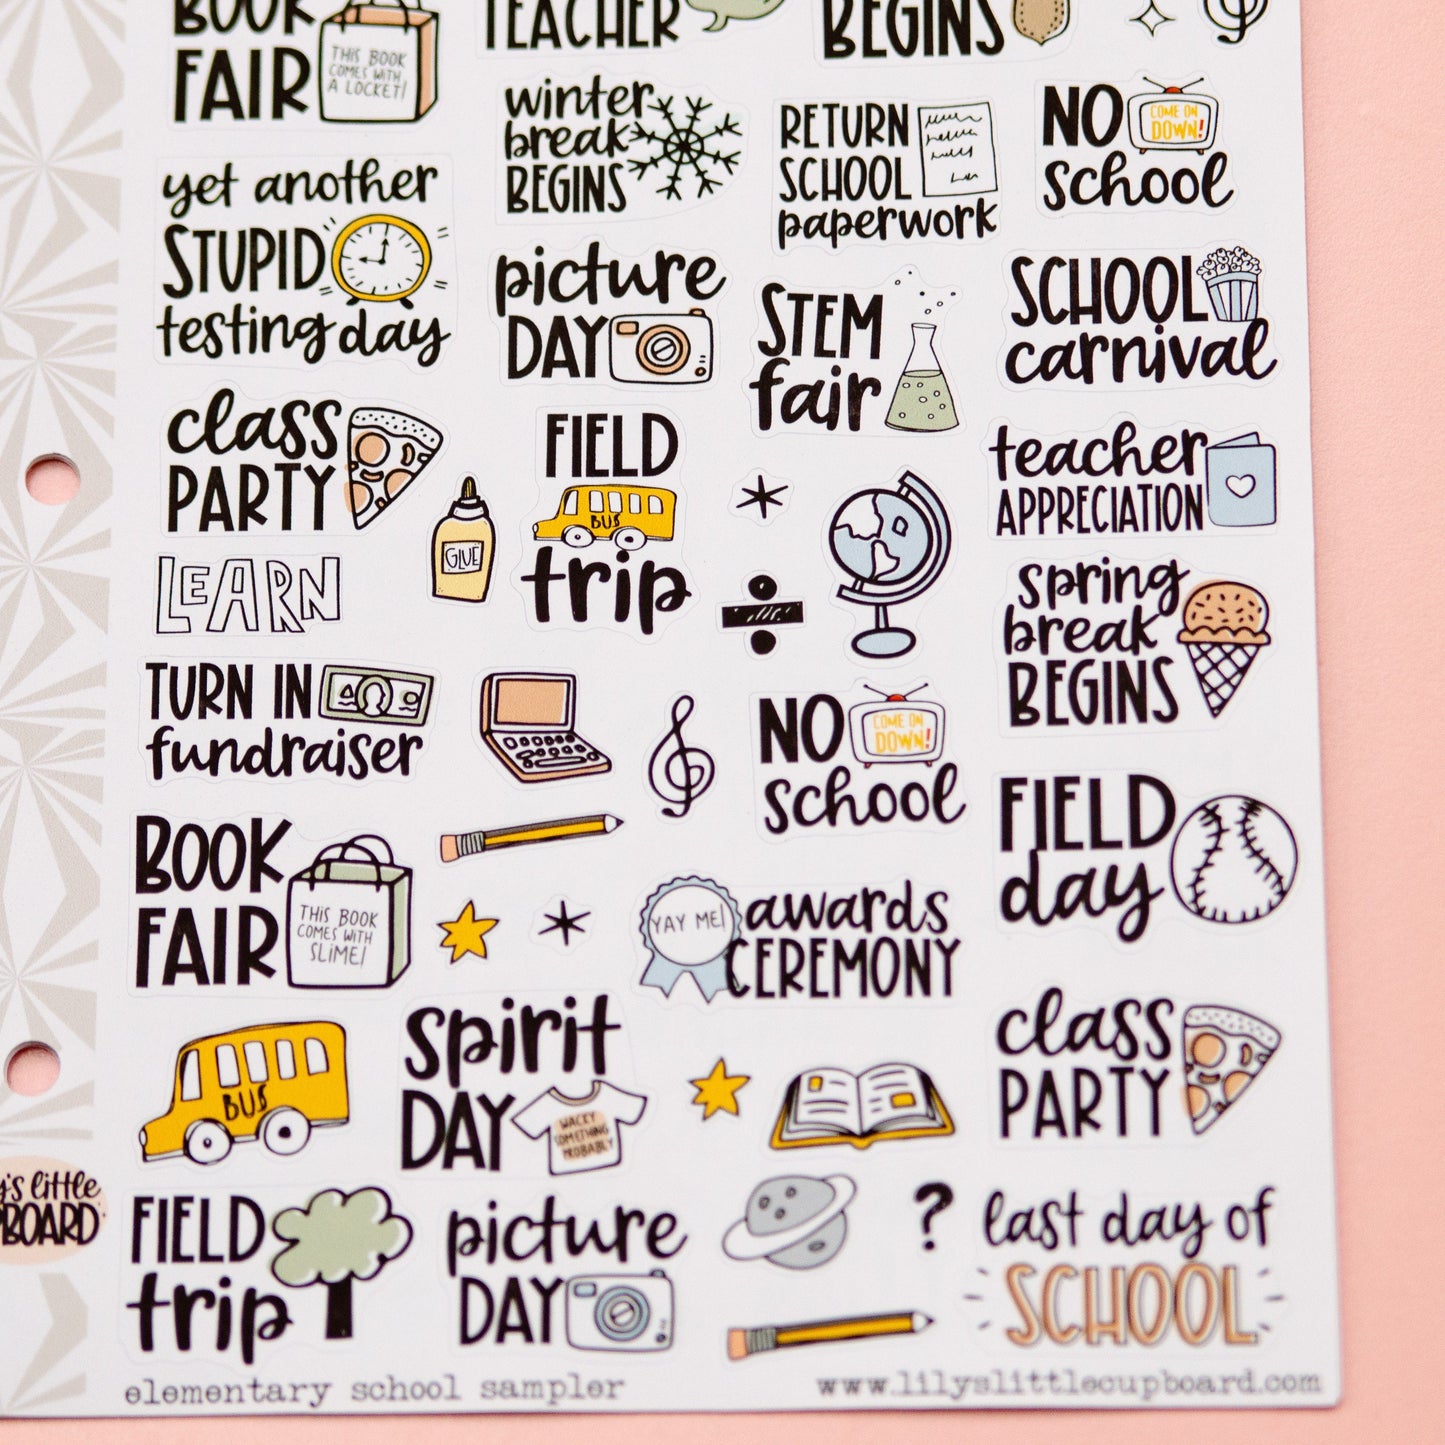 BOOK
FAIR
THIS BOOK
COMES WITH
A LOCKET!
TEACHER
BEGINS
winter
break
BEGINS
RETURN
SCHOOL
paperwork
NO
school
COME ON
DOWN!
yet another
STUPID
testing day
picture
DAY
STEM
fair
SCHOOL
carnival
class
PARTY
GLUE
FIELD
BUS
trip
teacher
APPRECIATION
LEARN
spring
break
BEGINS
TURN IN
fundraiser
NO
school
COME ON
DOWN!
FIELD
day
BOOK
FAIR
THIS BOOK
COMES WITH
SLIME!
YAY ME!
awards
CEREMONY
BUS
spirit
DAY
WACKY
SOMETHING
PROBABLY
class
PARTY
's little
BOARD
FIELD
trip
picture
DAY
?
last day of
SCHOOL
elementary school sampler
www.lilyslittlecupboard.com